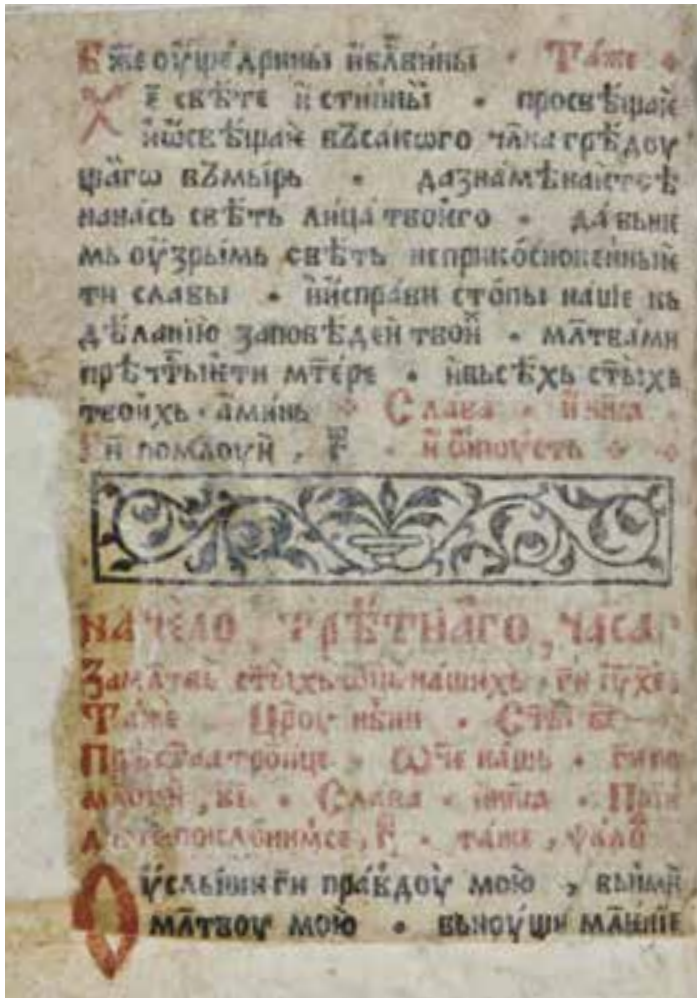 Бж҃е оу҆ще́дрины и҆бл҃вины · Та́же
Хе҃ свѣ́те и҆стинныи · просвѣщаѥ
и҆ѡ҆свѣщаѥ въсакѡго чл҃ка грѣдоу
щаⷢ҇ѡ въмырь · дазнаⷨ҇ѣнаѥтсѣ
нанась свѣть лица́твоѥго · да́вьнѥ
мь оу҆зрымь свѣть неприко́сновенныѥ
ти славы · и҆и҆спра́ви сто́пы на́ше кь
дѣланїю заповѣдеи твои · мл҃твами
прѣчⷭ҇тыѥти мт҃ере · и҆вьсѣхь ст҃ыхь
твоихь · а҆минь Слава · и҆нн҃ꙗ
Ги҃ помлоуи , г҃ · и҆ ѿпоусть
НАЧЕЛО , ТРѢ́ТНАГО , ЧА́СА
Замл҃твь ст҃ыхьѡц҃ьнашихь ги҃ і҆у҃ хе҃
Та́же Цр҃оу нбⷭ҇ни · Ст҃ы бе҃
Прѣст҃аатро́ице · Ѡ҆ч҃е на́шь · ги҃по
млоуи , вı҃ · Слава · и҆нн҃ꙗ · Прїи
дѣ́те поклони́мсе , г҃ · та́же , ѱало҃
Оу҆слы́ши ги҃ пра́вдоу мою̀ , вьнⷨ҇и
мл҃твоу мою · вьноу́ши мл҃нїе